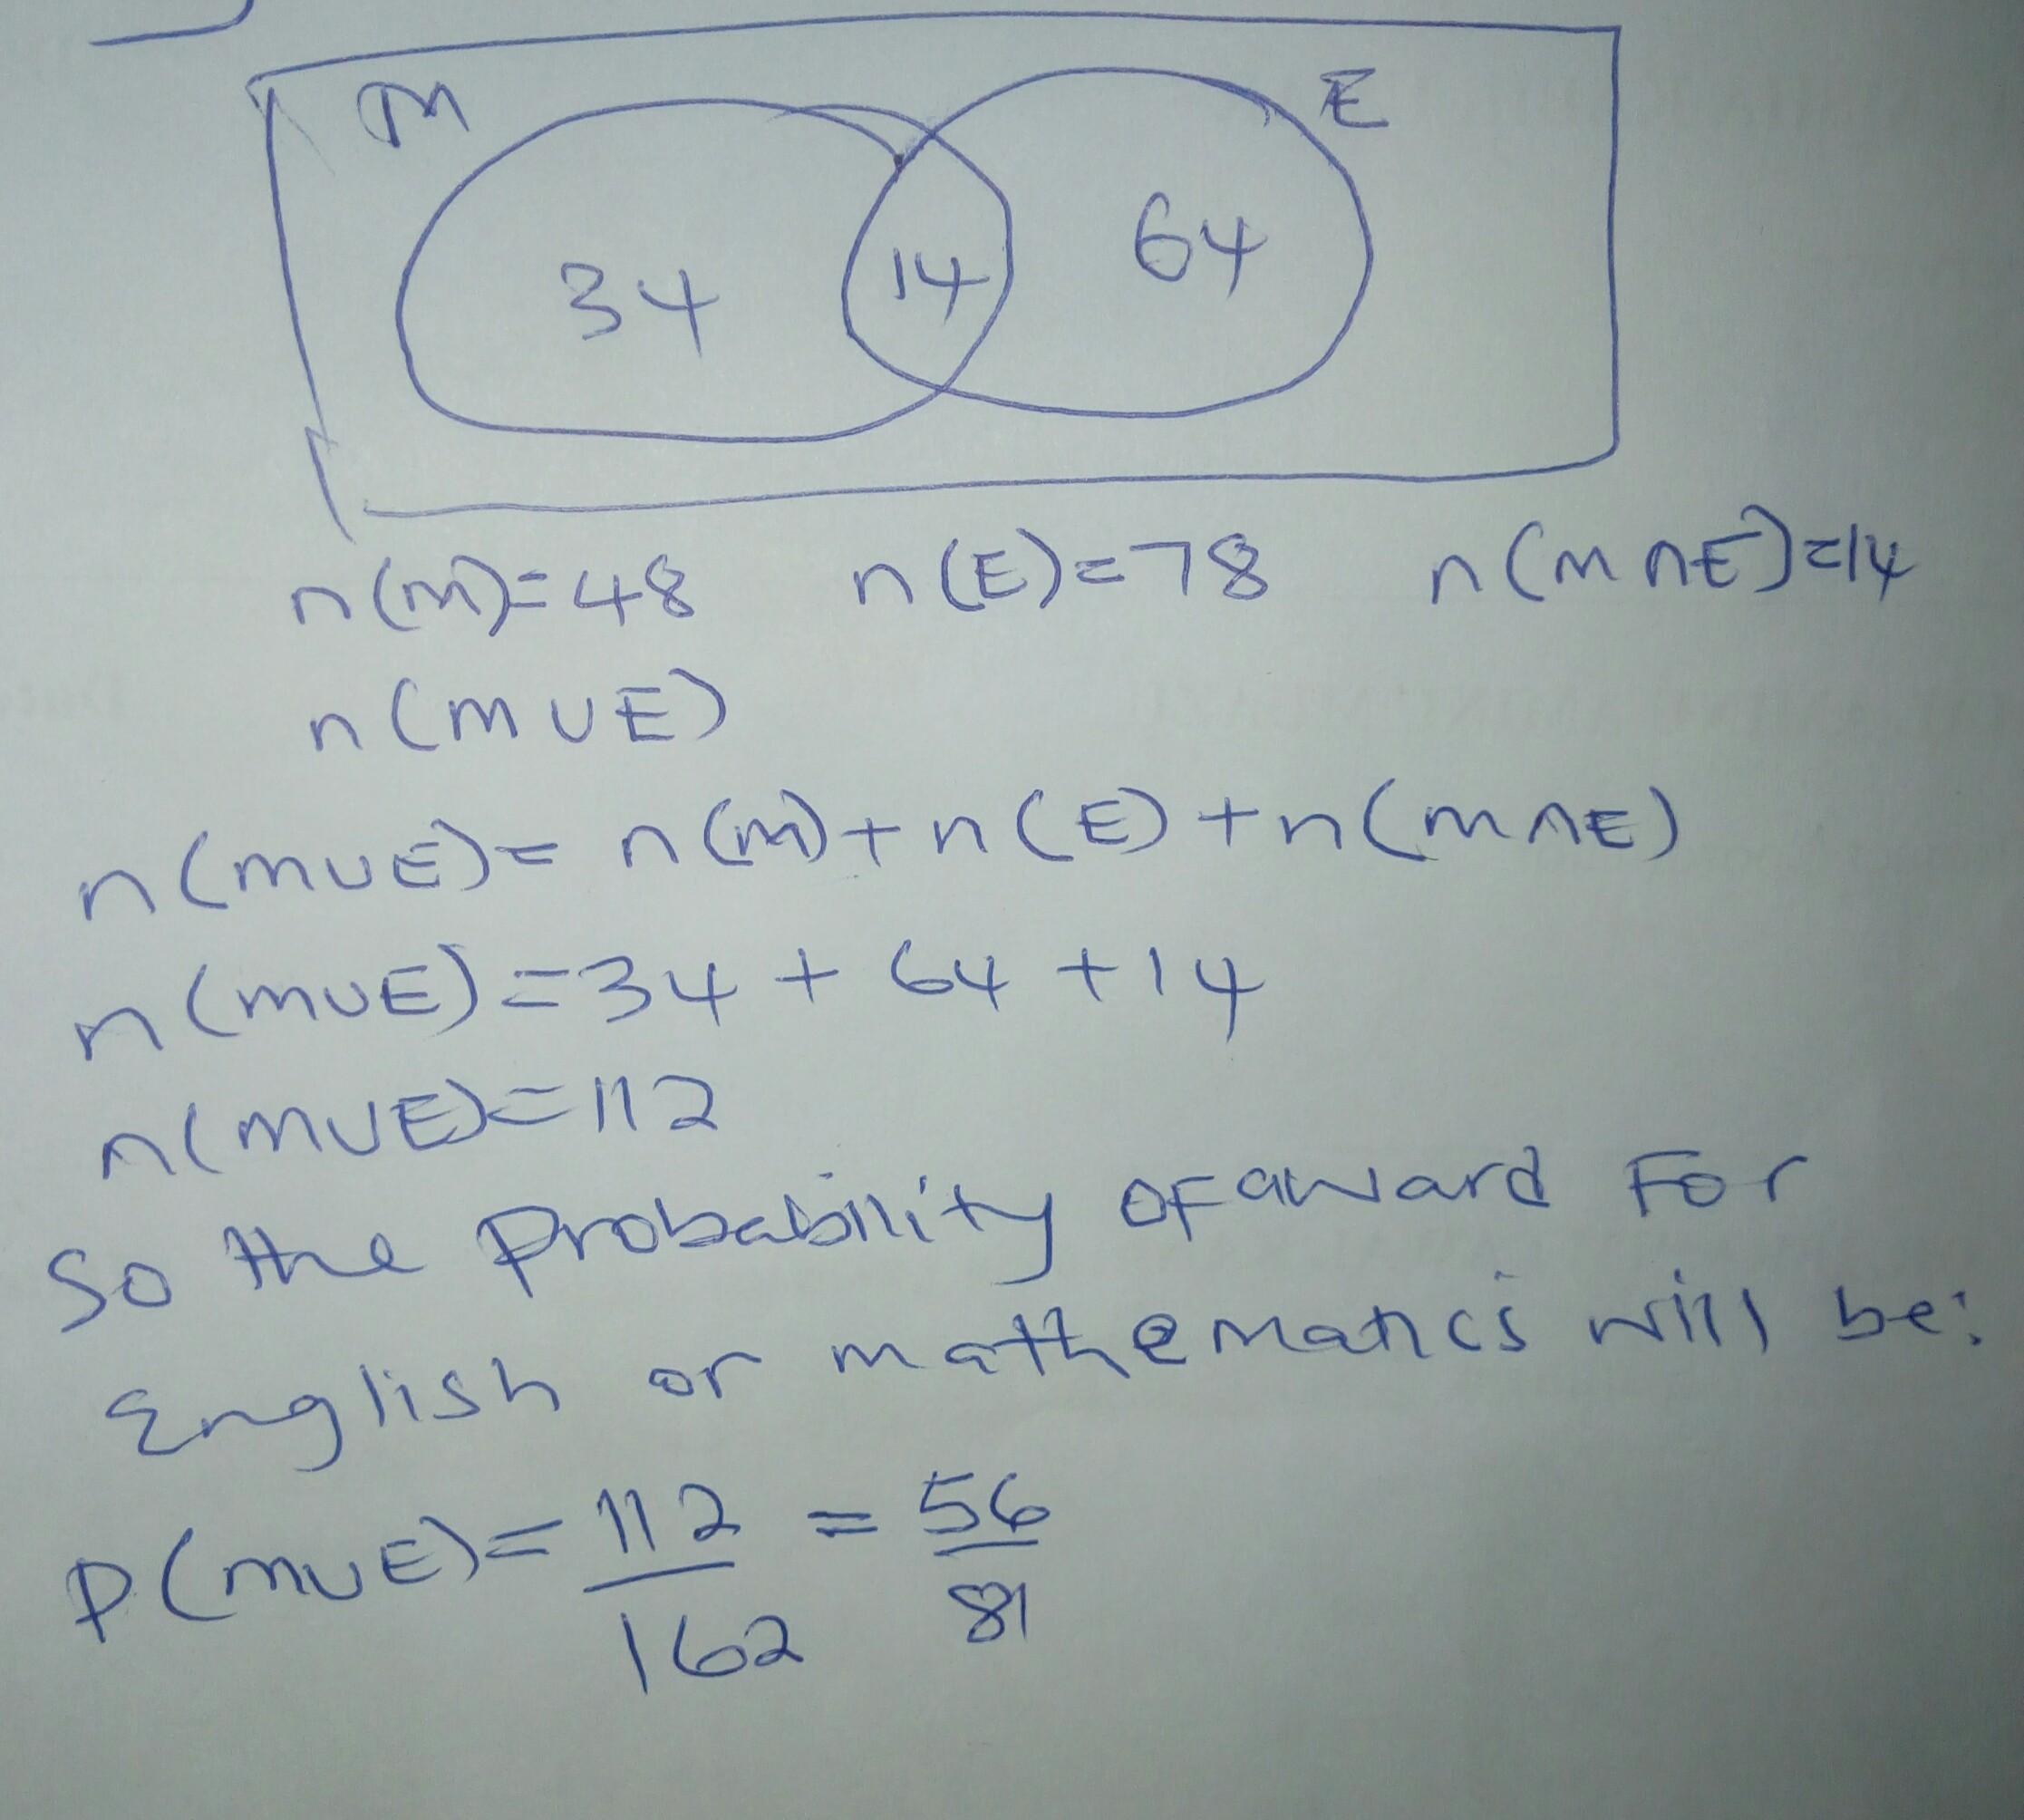 M E
34 14 64
n(m)=48 n(E)=78 n(m∩E)=14
n(m∪E)
n(m∪E)= n(m)+n(E)+n(m∩E)
n(m∪E)=34 + 64 +14
n(m∪E)=112
So the probability of award For
English or mathematics will be:
P(m∪E)= 112/162 = 56/81